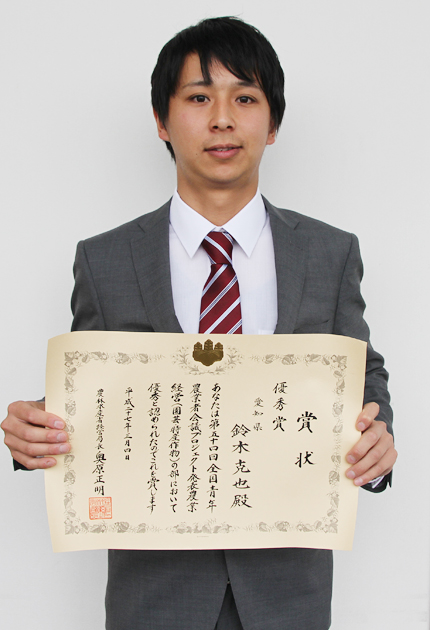 賞状
優秀賞
愛知県
鈴木克也殿
あなたは第五十四回全国青年
農業者会議プロジェクト発表農業
経営(園芸特産作物)の部において
優秀と認められたのでこれを賞します
平成二十七年三月四日
農林水産省経営局長 奥原正明